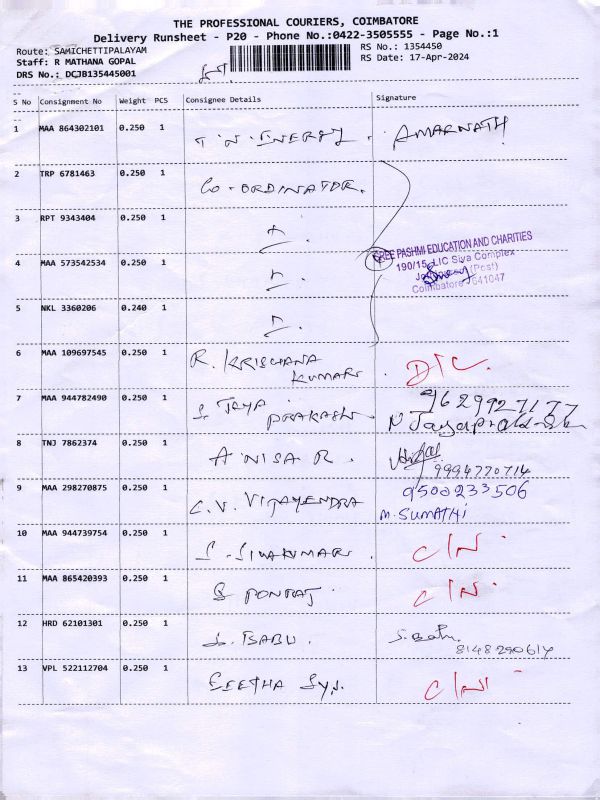 THE PROFESSIONAL COURIERS, COIMBATORE
Delivery Runsheet - P20 - Phone No.:0422-3505555 - Page No.:1
Route: SAMICHETTIPALAYAM
RS No.: 1354450
Staff: R MATHANA GOPAL
RS Date: 17-Apr-2024
DRS No.: DCJB135445001
S No Consignment No Weight PCS Consignee Details Signature
1 MAA 864302101 0.250 1 T. N. ENERGY. AMARNATH
2 TRP 6781463 0.250 1 CO-ORDINATOR.
3 RPT 9343404 0.250 1
SREE PASHMI EDUCATION AND CHARITIES
4 MAA 573542534 0.250 1
190/15, LIC Siva Complex
(Post)
Coimbatore - 641047
5 NKL 3360206 0.240 1
6 MAA 109697545 0.250 1 R. KRISHANA
KUMAR. D/C.
7 MAA 944782490 0.250 1 S. JAYA
PRAKASH. 9629927177
N Jayaprakash
8 TNJ 7862374 0.250 1 ANISA R.
9994770714
9 MAA 298270875 0.250 1 C. V. VIJAYENDRA 9500233506
M. SUMATHI
10 MAA 944739754 0.250 1 S. SIVAKUMAR. C/N.
11 MAA 865420393 0.250 1 S PONRAJ. C/N.
12 HRD 62101301 0.250 1 S. BABU. S. Babu.
8148290614
13 VPL 522112704 0.250 1 GEETHA Sys. C/N